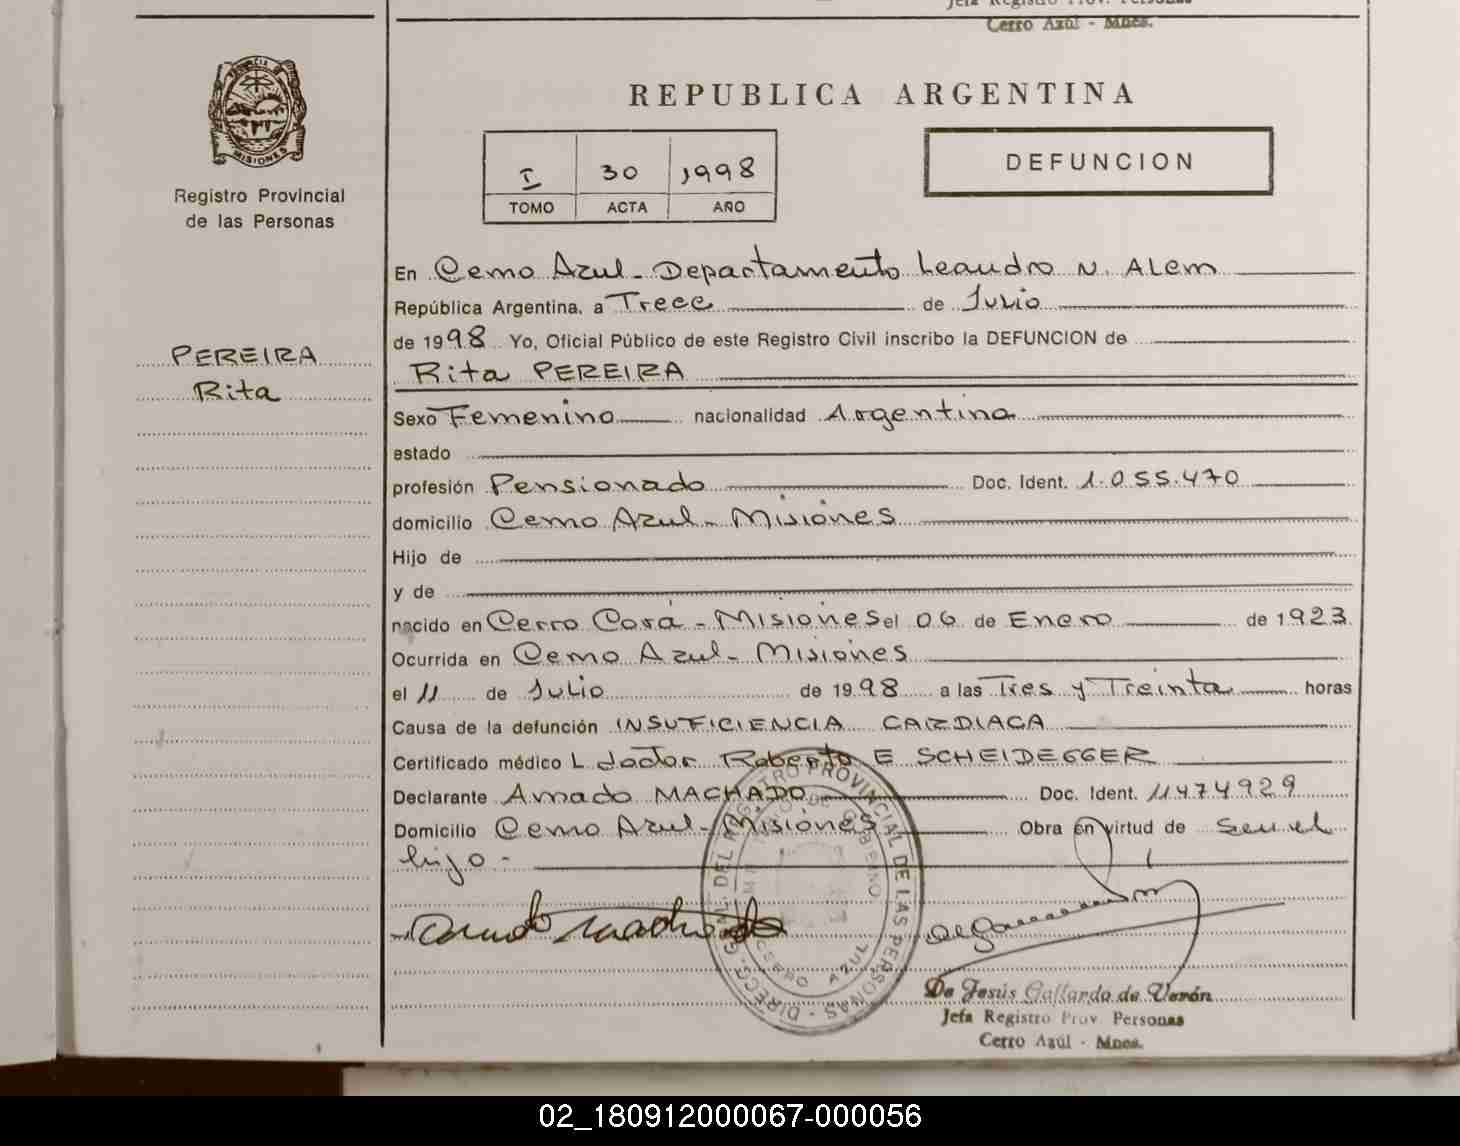 Jefa Registro Prov. Personas
Cerro Azúl - Mnes.
PROVINCIA DE
MISIONES
Registro Provincial
de las Personas
REPUBLICA ARGENTINA
I 30 1998
TOMO ACTA AÑO
DEFUNCION
PEREIRA
Rita
En Cerro Azul - Departamento Leandro N. Alem
República Argentina, a Trece de Julio
de 1998 Yo, Oficial Público de este Registro Civil inscribo la DEFUNCION de
Rita PEREIRA
Sexo Femenino nacionalidad Argentina
estado
profesión Pensionado Doc. Ident. 1.055.470
domicilio Cerro Azul - Misiones
Hijo de
y de
nacido en Cerro Corá - Misiones el 06 de Enero de 1923
Ocurrida en Cerro Azul - Misiones
el 11 de Julio de 1998 a las Tres y Treinta horas
Causa de la defunción INSUFICIENCIA CARDIACA
Certificado médico L doctor Roberto E SCHEIDEGGER
Declarante Amado MACHADO Doc. Ident. 11474929
Domicilio Cerro Azul - Misiones Obra en virtud de ser el
hijo -
DIREC. GRAL. DEL REGISTRO PROVINCIAL DE LAS PERSONAS
CERRO AZUL
Amado Machado
De Jesús Gallardo de Verón
Jefa Registro Prov. Personas
Cerro Azúl - Mnes.
02_180912000067-000056